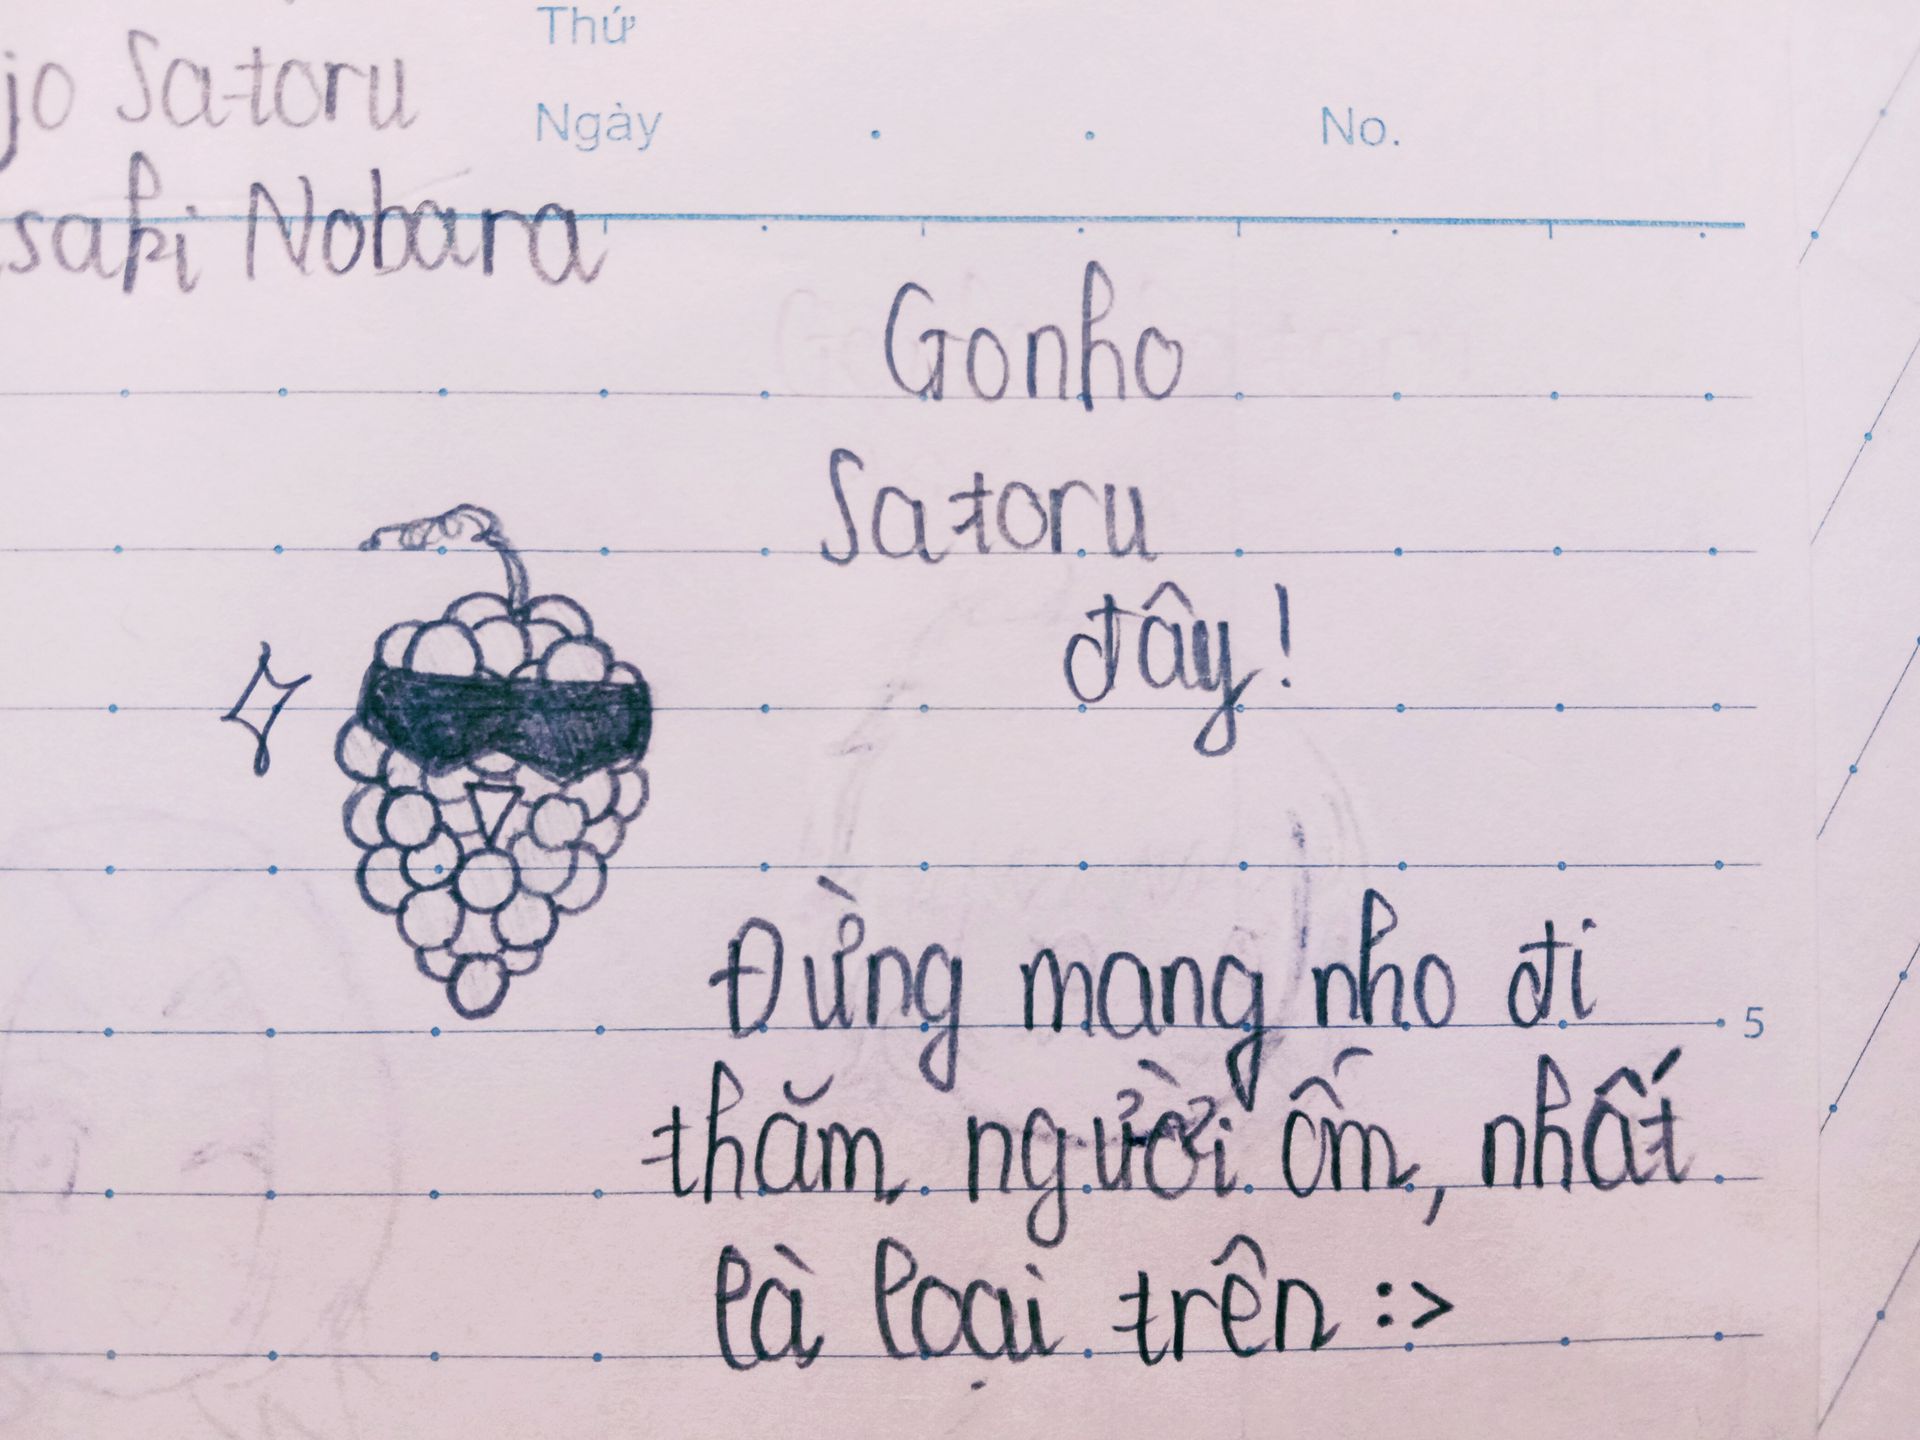 Thứ
jo Satoru
Ngày . . No.
saki Nobara
Gonho
Satoru
đây!
Đừng mang nho đi
5
thăm người ốm, nhất
là loại trên :>